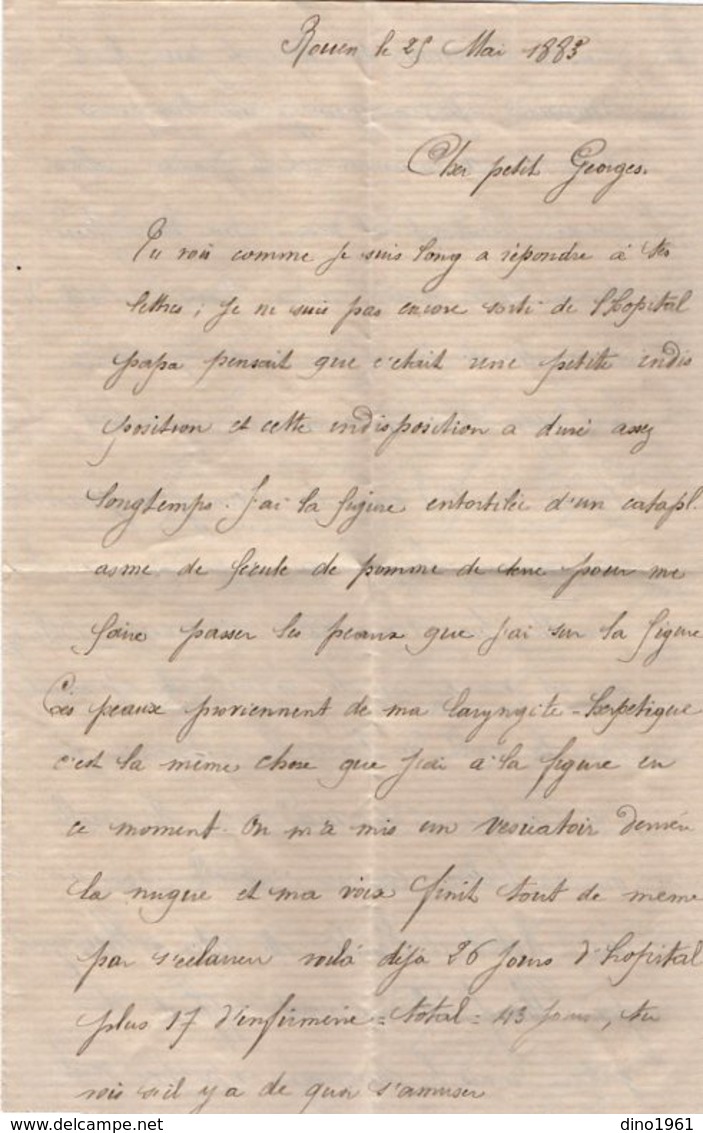 Rouen le 25 Mai 1883
Cher petit Georges.
Tu vois comme je suis long a répondre à tes
lettres ; je ne suis pas encore sorti de l'hopital
papa pensait que c'etait une petite indis
position et cette indisposition a duré assez
longtemps. J'ai la figure entortilée d'un catapl.
asme de fécule de pomme de terre pour me
faire passer les peaux que j'ai sur la figure
Ces peaux proviennent de ma laryngite-herpetique
c'est la même chose que j'ai à la figure en
ce moment. On m'a mis un vesicatoir derrière
la nuque et ma voix finit tout de meme
par s'eclaircir voilà déja 26 jours d'hopital
plus 17 d'infirmerie = total = 43 jours, tu
vois s'il y a de quoi s'amuser
dino1961